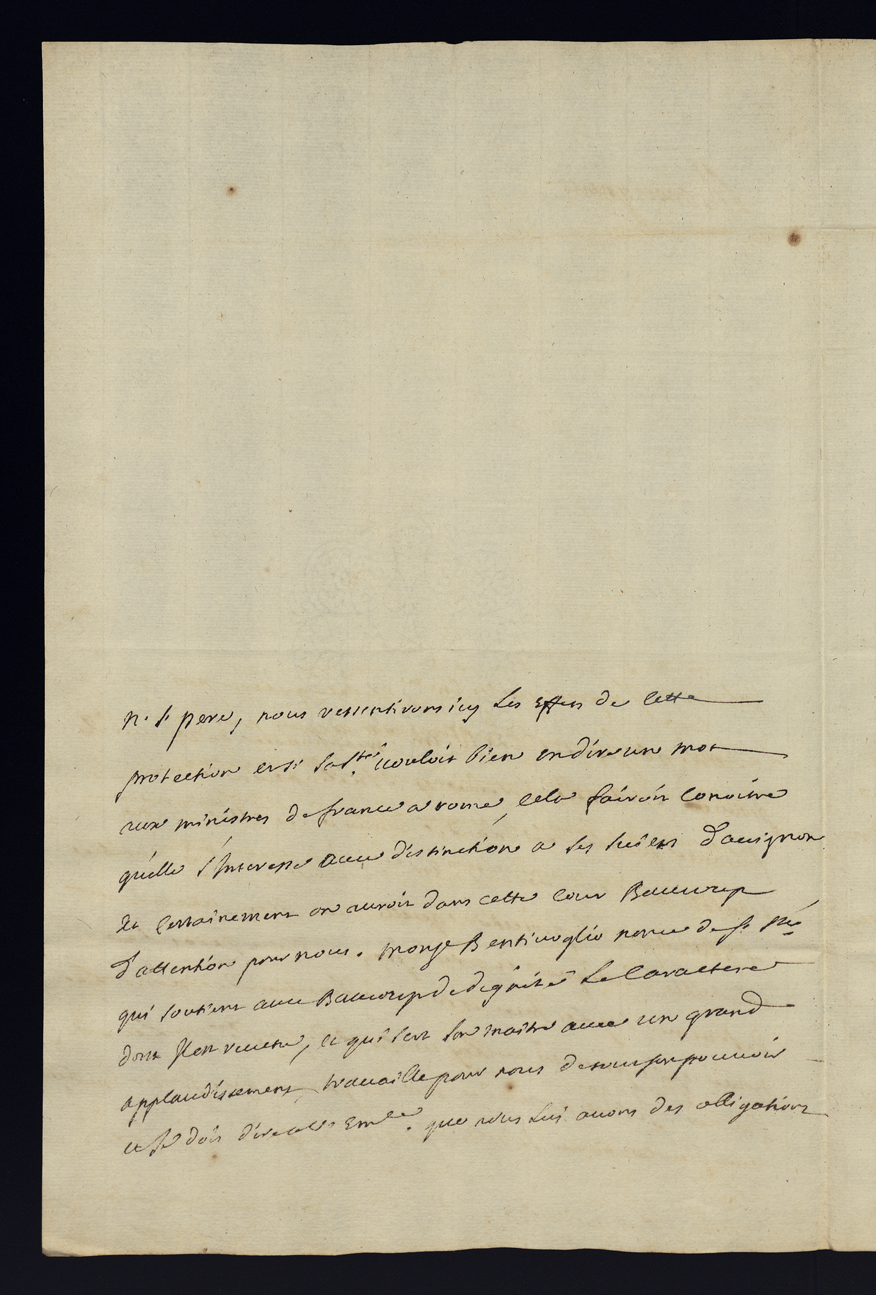 n. s. pere, nous ressentirons icy les effets de cette
protection et si sa s.teté vouloit bien en dire un mot
aux ministres de france a rome, cela fairoit conoitre
qu'elle s'interesse avec distinction a ses sujets d'avignon
et certainement on auroit dans cette cour Baucoup
d'attention pour nous. monsr Bentivoglio nonce de sa sté
qui soutient avec Baucoup de dignité le Caractere
dont il est revetu, et qui sert son maitre avec un grand
applaudissement, travaille pour nous de tout son pouvoir
et je dois dire a v. Emce. que nous lui avons des obligations